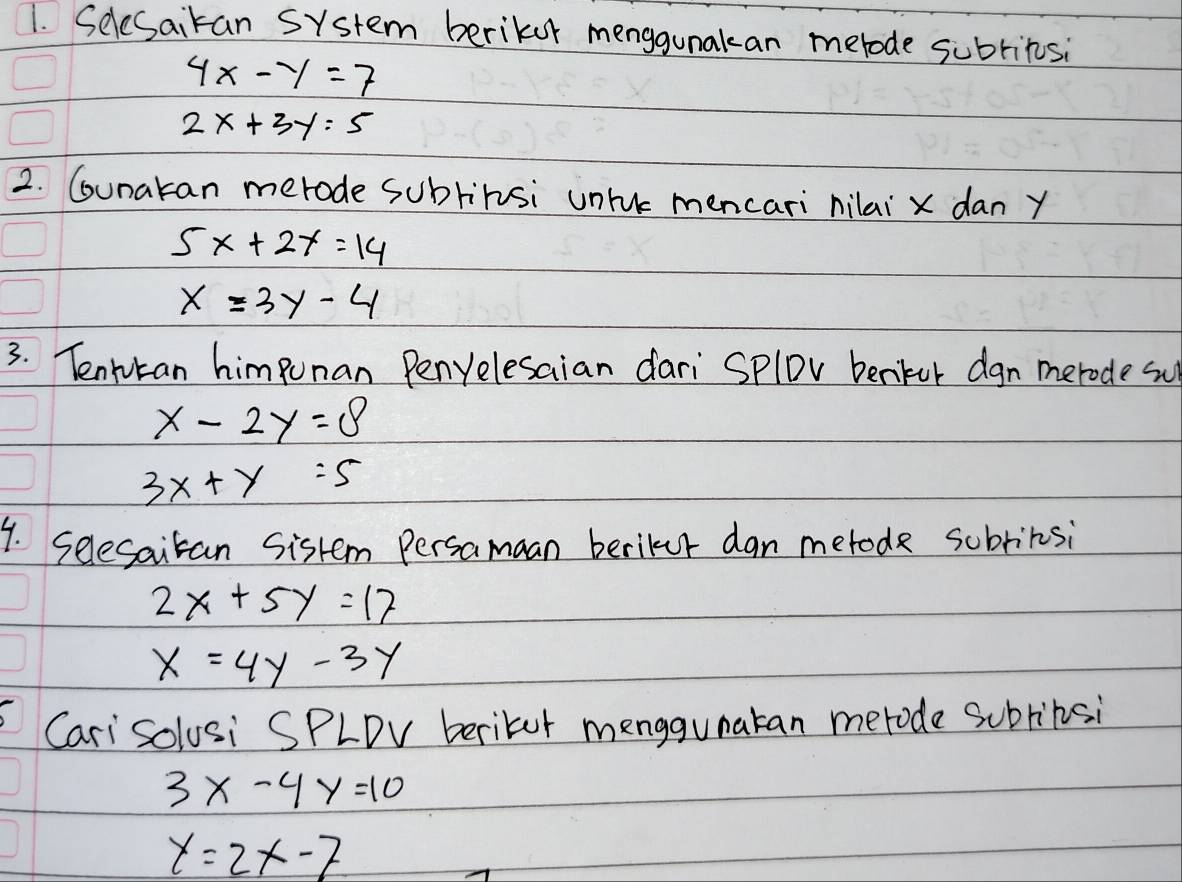 1. Selesaikan system berikut menggunakan metode subtitusi
4x - y = 7
2x + 3y = 5
2. Gunakan metode subtitusi untuk mencari nilai x dan y
5x + 2y = 14
x = 3y - 4
3. Tentukan himpunan Penyelesaian dari SPlDV berikut dgn metode su
x - 2y = 8
3x + y = 5
4. selesaikan sistem Persamaan berikut dgn metode subtitusi
2x + 5y = 17
x = 4y - 3y
5 Cari solusi SPLDV berikut menggunakan metode subtitusi
3x - 4y = 10
y = 2x - 7